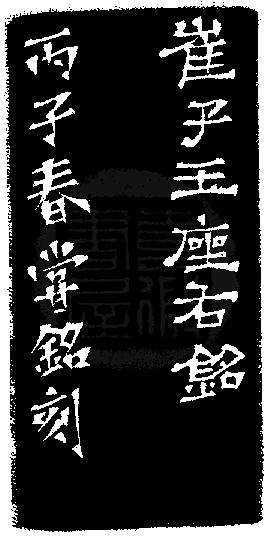 崔子玉座右銘
丙子春銘刻